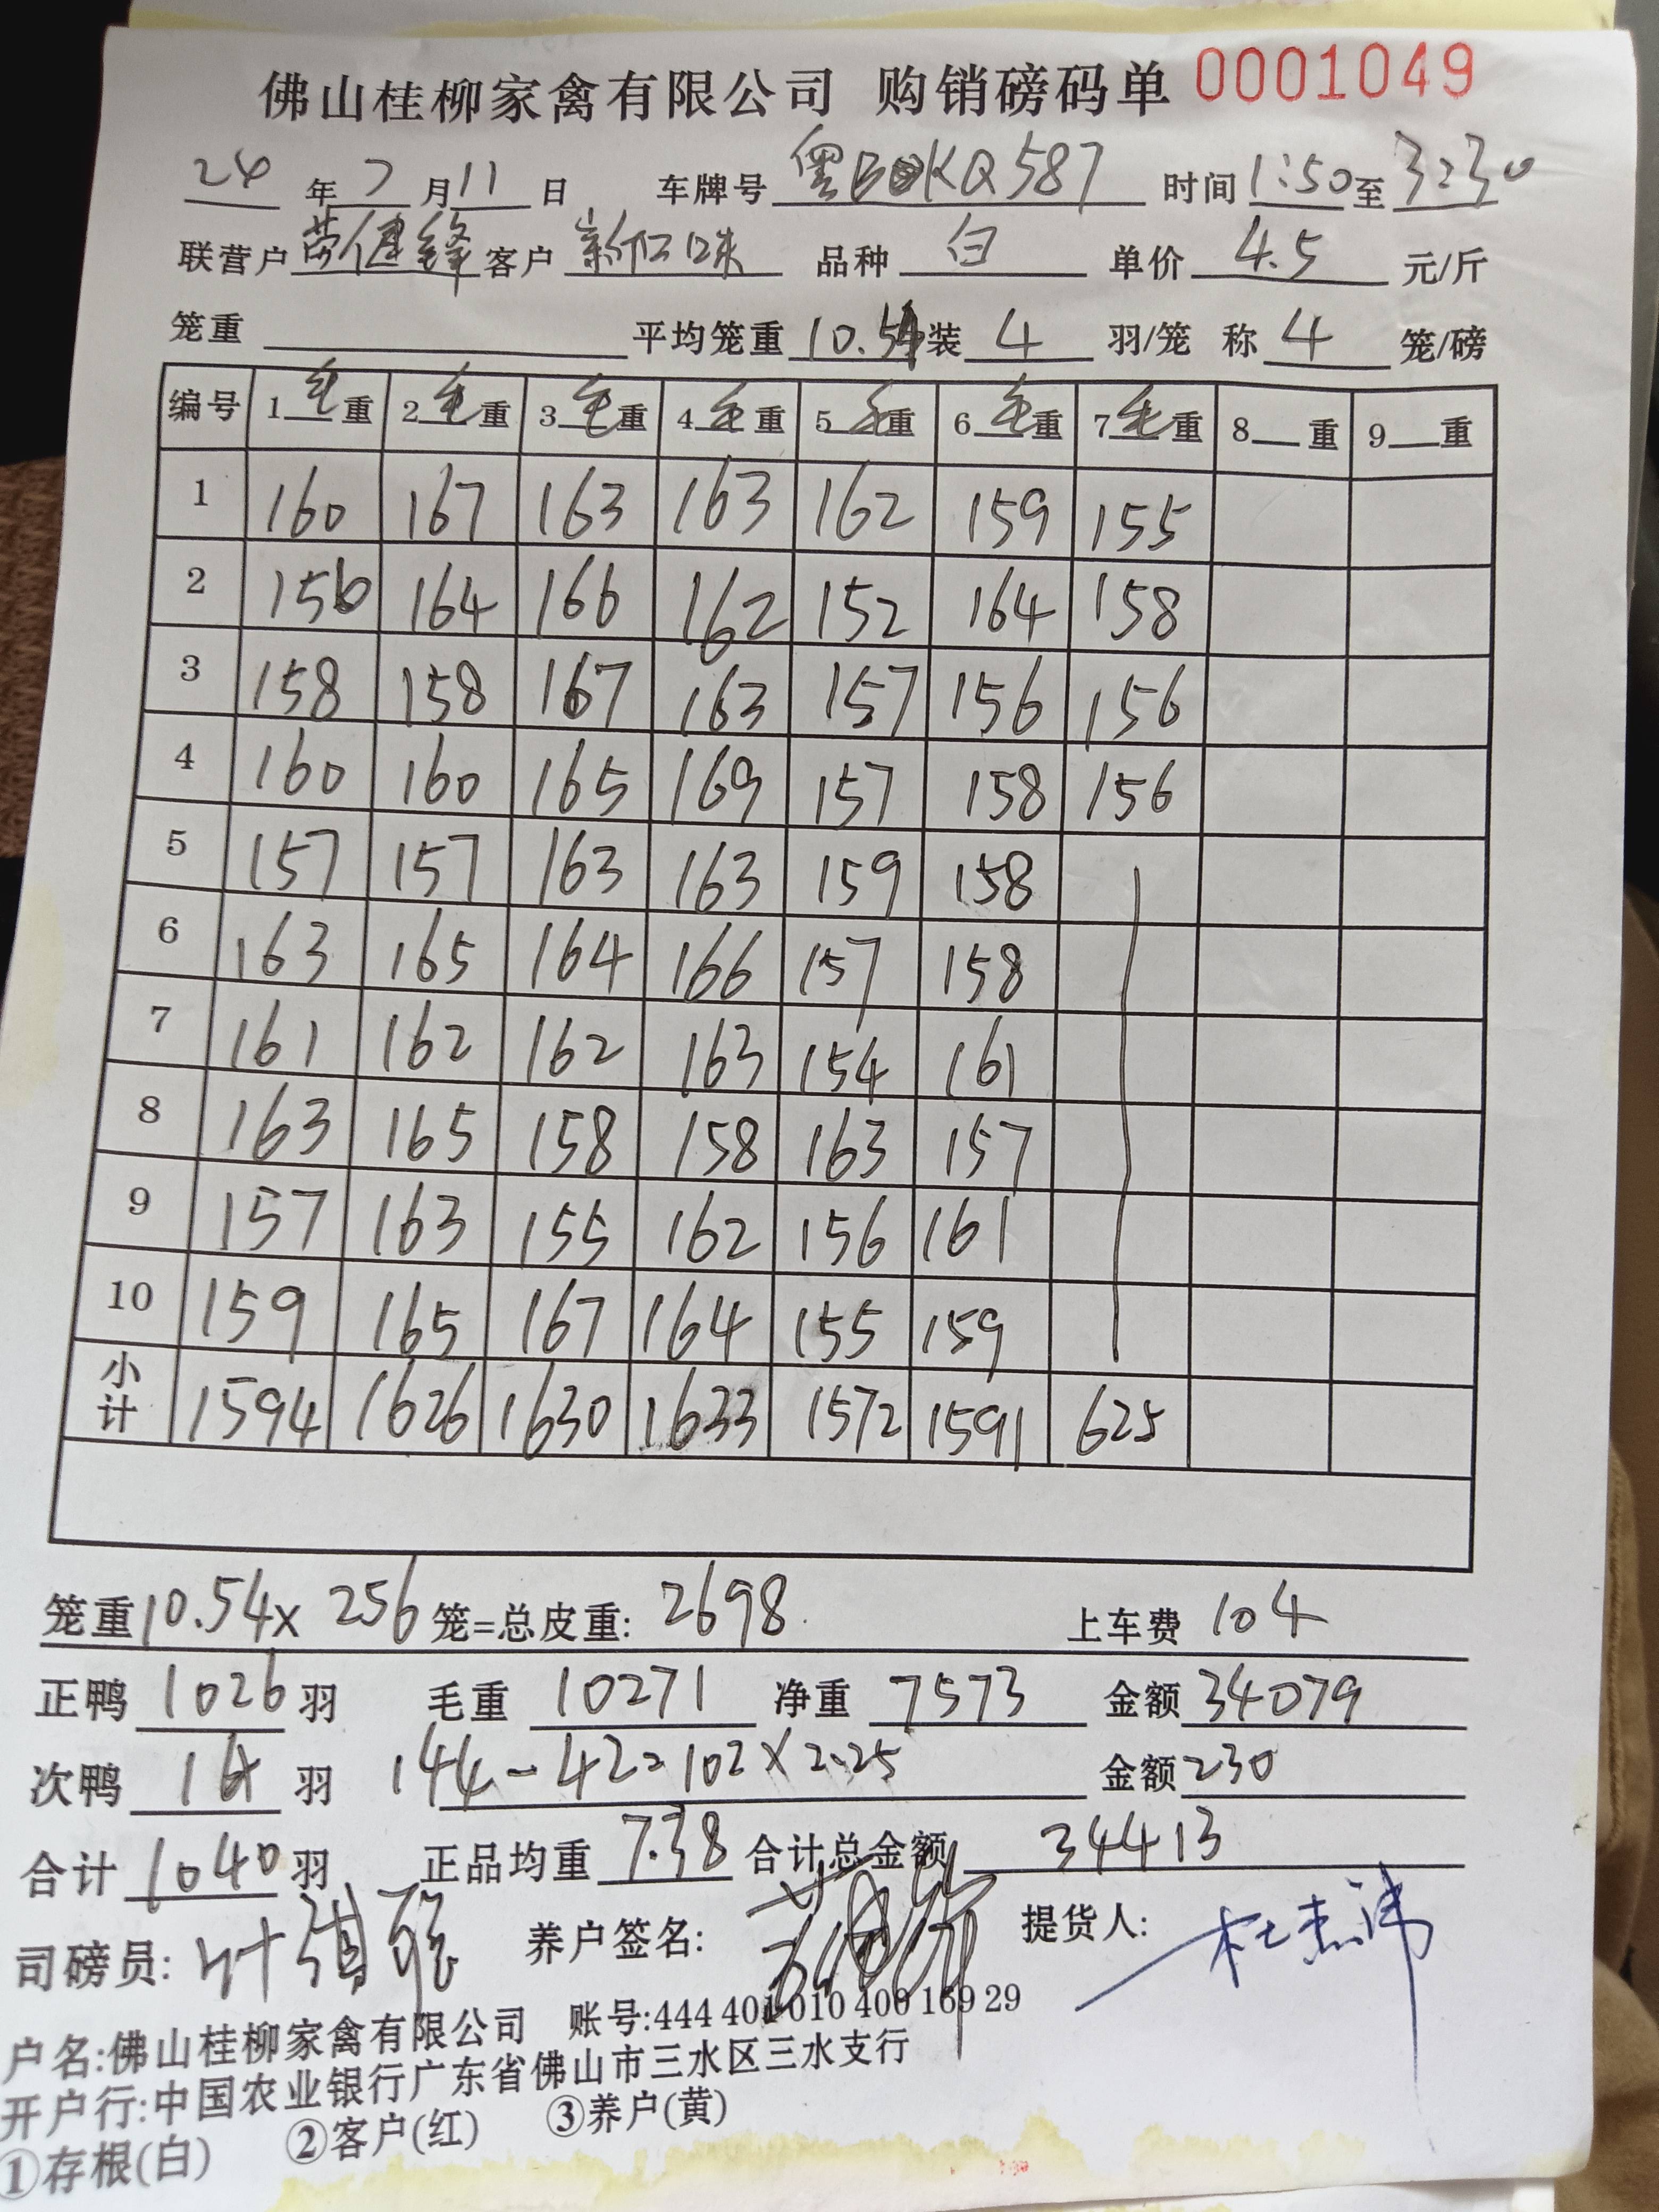 佛山桂柳家禽有限公司 购销磅码单 0001049
24 年 7 月 11 日 车牌号 粤B KQ587 时间 1:50 至 3:30
联营户 劳健锋 客户 新仁味 品种 白 单价 4.5 元/斤
笼重 平均笼重 10.54 装 4 羽/笼 称 4 笼/磅
编号 1毛重 2毛重 3毛重 4毛重 5毛重 6毛重 7毛重 8 重 9 重
1 160 167 163 163 162 159 155
2 156 164 166 162 152 164 158
3 158 158 167 163 157 156 156
4 160 160 165 169 157 158 156
5 157 157 163 163 159 158
6 163 165 164 166 157 158
7 161 162 162 163 154 161
8 163 165 158 158 163 157
9 157 163 155 162 156 161
10 159 165 167 164 155 159
小计 1594 1626 1630 1633 1572 1591 625
笼重 10.54 x 256 笼=总皮重: 2698 上车费 104
正鸭 1026 羽 毛重 10271 净重 7573 金额 34079
次鸭 14 羽 144-42=102×2.25 金额 230
合计 1040 羽 正品均重 7.38 合计总金额 34413
司磅员: 养户签名: 提货人: 杜杰沛
户名:佛山桂柳家禽有限公司 账号:444 401 010 400 169 29
开户行:中国农业银行广东省佛山市三水区三水支行
①存根(白) ②客户(红) ③养户(黄)